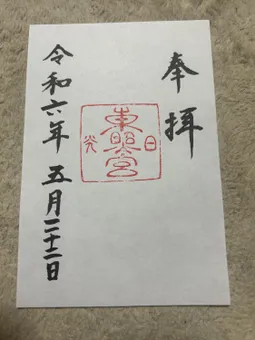 奉拝
日光
東照宮
令和六年五月二十二日